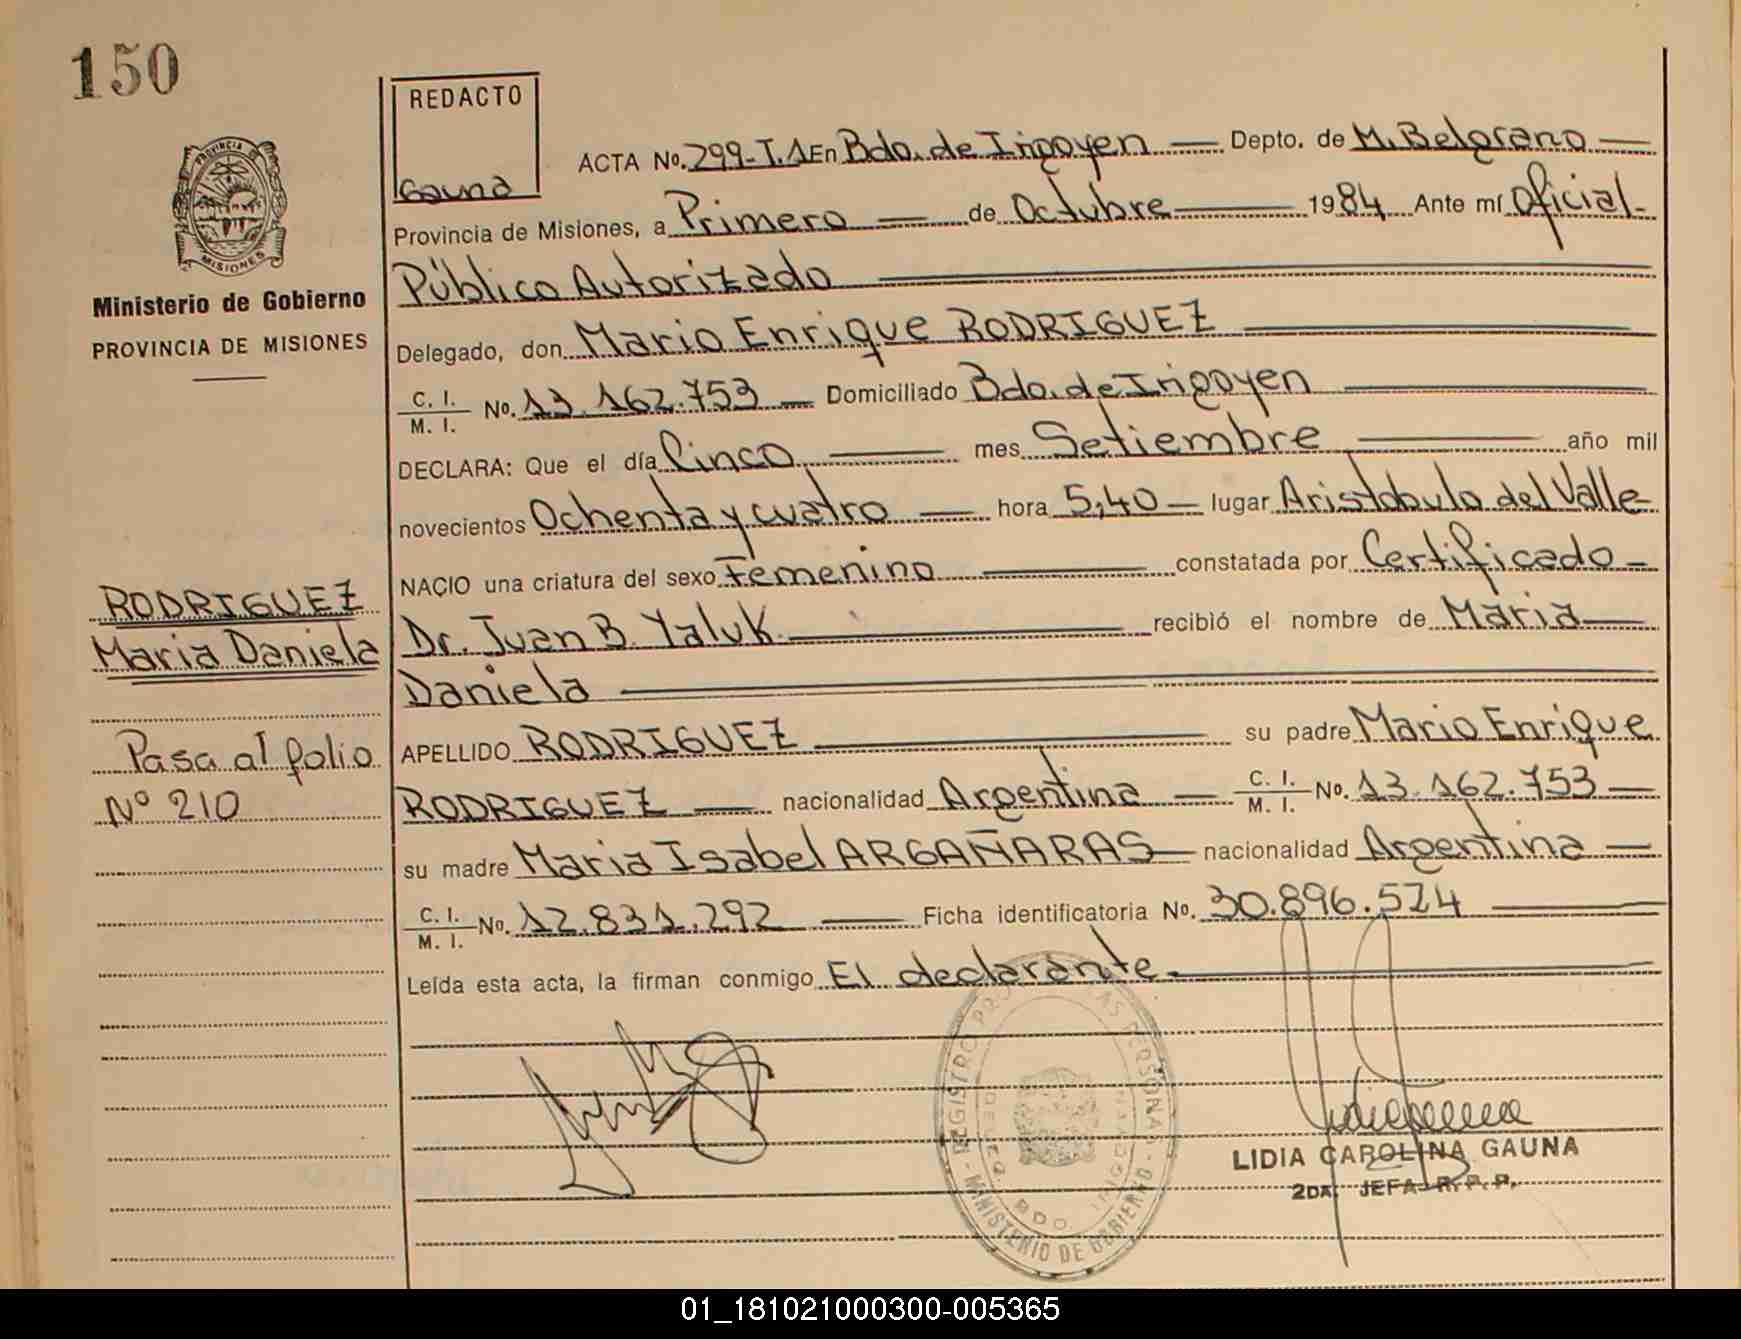 150
REDACTO
Gauna
PROVINCIA DE
MISIONES
Ministerio de Gobierno
PROVINCIA DE MISIONES
ACTA No. 299-T.1 En Bdo. de Irigoyen Depto. de M. Belgrano
Provincia de Misiones, a Primero de Octubre 1984 Ante mí Oficial
Público Autorizado
Delegado, don Mario Enrique RODRIGUEZ
C. I.
M. I. No. 13.162.753 Domiciliado Bdo. de Irigoyen
DECLARA: Que el día Cinco mes Setiembre año mil
novecientos Ochenta y cuatro hora 5,40 lugar Aristobulo del Valle
NACIO una criatura del sexo Femenino constatada por Certificado
Dr. Juan B. Yaluk recibió el nombre de Maria
Daniela
APELLIDO RODRIGUEZ su padre Mario Enrique
RODRIGUEZ nacionalidad Argentina C. I.
M. I. No. 13.162.753
su madre Maria Isabel ARGAÑARAS nacionalidad Argentina
C. I.
M. I. No. 12.831.292 Ficha identificatoria No. 30.896.524
Leída esta acta, la firman conmigo El declarante
RODRIGUEZ
Maria Daniela
Pasa al folio
Nº 210
REGISTRO PROV. LAS PERSONAS - MINISTERIO DE GOBIERNO -
DELEG. BDO. IRIGOYEN
LIDIA CAROLINA GAUNA
2DA. JEFA R. P. P.
01_181021000300-005365